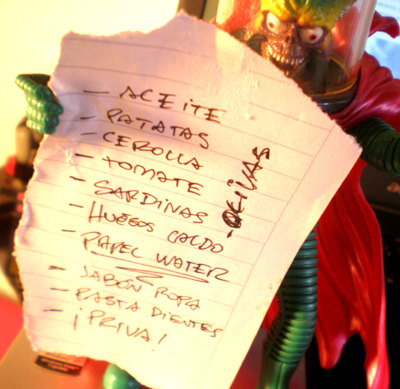 - ACEITE
- PATATAS
- CEROLLA
- TOMATE
- SARDINAS
- HUESOS CALDO
- PAPEL WATER
- JABÓN ROPA
- PASTA DIENTES
- ¡PRIVA!
- OLIVAS